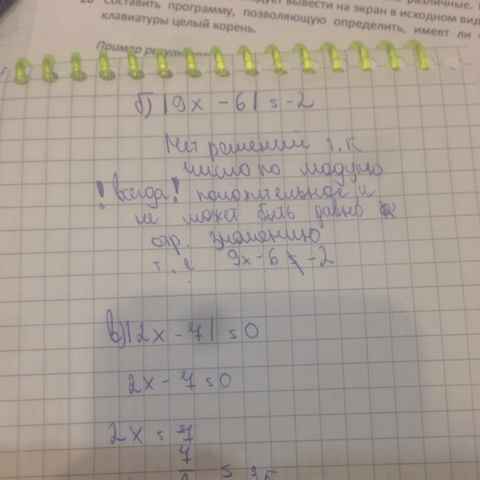 вывести на экран в исходном вид
20 Составить программу, позволяющую определить, имеет ли
клавиатуры целый корень.
Пример
б) |9x - 6| = -2
Нет решений т.к
число по модулю
! всегда! положительное и
не может быть равно
отр. значению
9x - 6 ≠ -2
в) |2x - 7| = 0
2x - 7 = 0
2x = 7
7